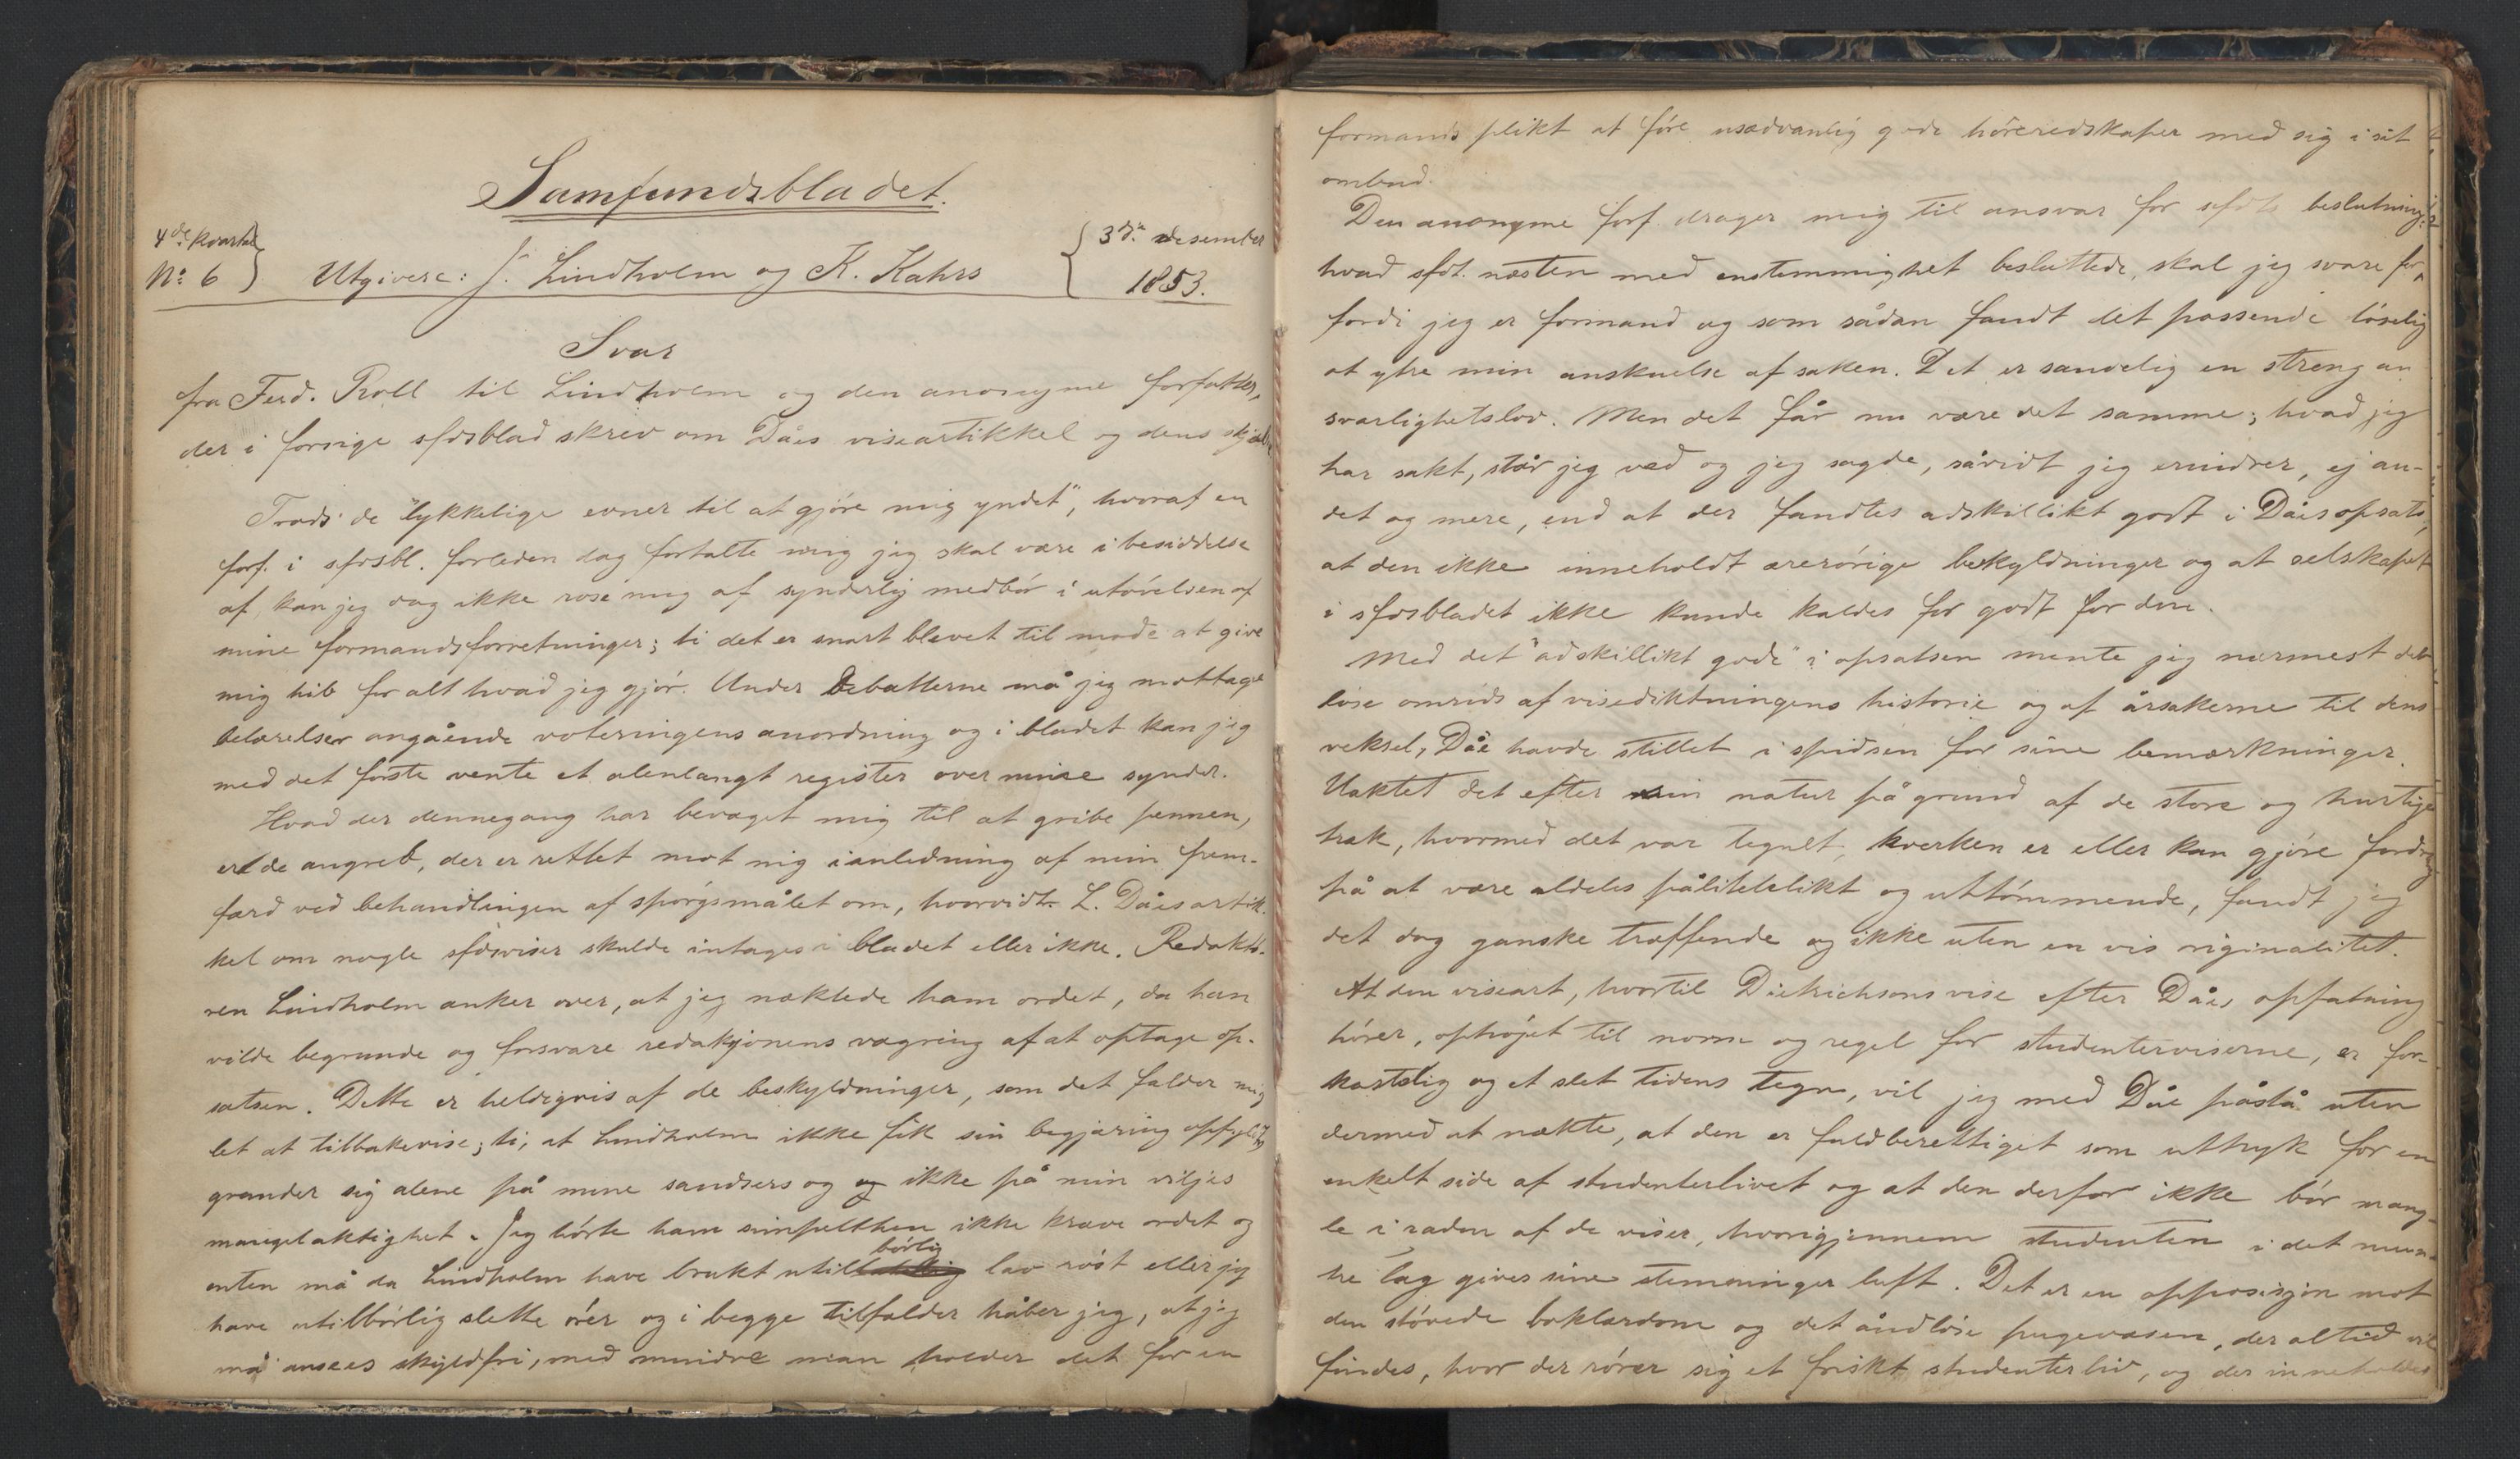 Samfundsbladet.
4de kvartal
No: 6
Utgivere: J. Lindholm og K. Kahrs
3de. desember
1853.
Svar
fra Ferd. Roll til Lindholm og den anonyme forfatter,
der i forrige sfdsblad skrev om Dåes viseartikkel og dens
Trods de "lykkelige evner til at gjöre mig yndet", hvoraf en
forf. i sfdsbl. forleden dag fortalte mig jeg skal være i besiddelse
af, kan jeg dog ikke rose mig af synderlig medbör i utövelsen af
mine formandsforretninger; ti det er snart blevet til mode at give
mig hib for alt hvad jeg gjör. Under Debatterne må jeg mottage
belærelser angående voteringens anordning og i bladet kan jeg
med det förste vente et alenlangt register over mine synder.
Hvad der dennegang har bevæget mig til at gribe pennen,
er de angreb, der er rettet mot mig i anledning af min frem-
færd ved behandlingen af spörgsmålet om, hvorvidt L. Dåes artik-
kel om nogle sfdsviser skulde intages i bladet eller ikke. Redaktö-
ren Lindholm anker over, at jeg næktede ham ordet, da han
vilde begrunde og forsvare redaksjonens vægring af at optage op-
satsen. Dette er heldigvis af de beskyldninger, som det falder mig
let at tilbakevise; ti, at Lindholm ikke fik sin begjæring opfyldt,
grunder sig alene på mine sandsers og og ikke på min viljes
mangelaktighet. Jeg hörte ham simpelthen ikke kræve ordet og
enten må da Lindholm have brukt utilbörlig lav röst eller jeg
have utilbörlig slette örer og i begge tilfælder håber jeg, at jeg
må ansees skyldfri, med mindre man holder det for en
formands plikt at före usædvanlig gode höreredskaper med sig i sit
ombud.
Den anonyme forf. drager mig til ansvar for sfdts beslutning;
hvad sfdt. næsten med enstemmighet besluttede, skal jeg svare for,
fordi jeg er formand og som sådan fandt det passende löselig
at ytre min anskuelse af saken. Det er sandelig en streng an
svarlighetslov. Men det får nu være det samme; hvad jeg
har sakt, står jeg ved og jeg sagde, såvidt jeg erindrer, ej an-
det og mere, end at der fandtes adskillikt godt i Dåes opsats,
at den ikke inneholdt ærerörige beskyldninger og at selskapet
i sfdsbladet ikke kunde kaldes for godt for den.
Med det "adskillikt gode" i opsatsen mente jeg nærmest det
löse omrids af visediktningens historie og af årsakerne til dens
veksel, Dåe havde stillet i spidsen for sine bemærkninger.
Uaktet det efter sin natur på grund af de store og hurtige
træk, hvormed det var tegnet, hverken er eller kan gjöre fordring
på at være aldeles pålitelikt og uttömmende, fandt jeg
det dog ganske træffende og ikke uten en vis riginalitet.
At den viseart, hvortil Dietrichsons vise efter Dåes opfatning
hörer, ophöjet til norm og regel for studenterviserne, er for-
kastelig og et slet tidens tegn, vil jeg med Dåe påstå uten
dermed at nækte, at den er fuldberettiget som uttryk for en
enkelt side af studenterlivet og at den derfor ikke bör mang-
le i raden af de viser, hvorigjennem studenten i det mun-
tre lag giver sine stemninger luft. Det er en opposisjon mot
den stövede boklærdom og det åndlöse pugevæsen, der altid vil
findes, hvor der rörer sig et friskt studenterliv, og der inneholdes